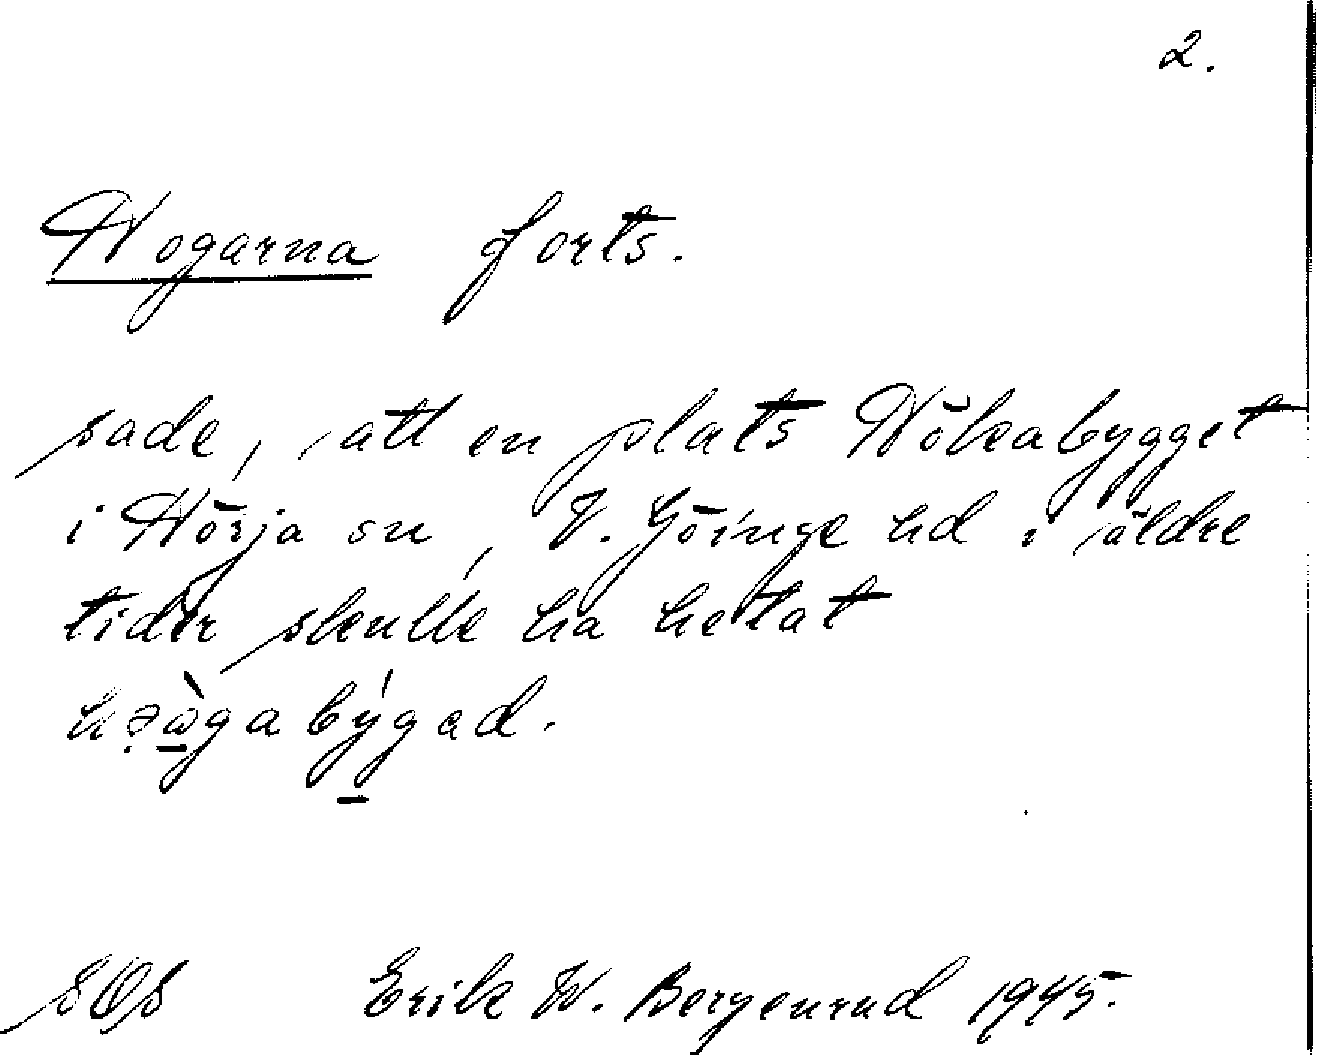 2.
Hogarna forts.
sade, att en plats Hökabygget
i Hörja sn, V. Göinge hd i äldre
tider skulle ha hetat
SOS Erik W. Bergenrud 1945.